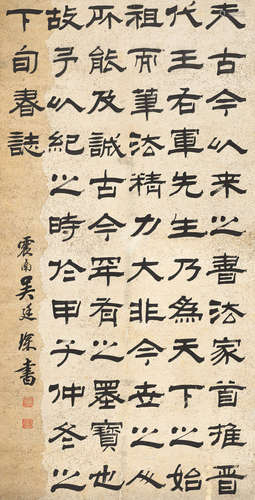 夫古今以来之書法家首推晋
代王右軍先生乃為天下之始
祖而筆法精力大非今世之人
所能及誠古今罕有之墨寶也
故予以紀之時於甲子仲冬之
下旬春誌
震南吴廷琛書